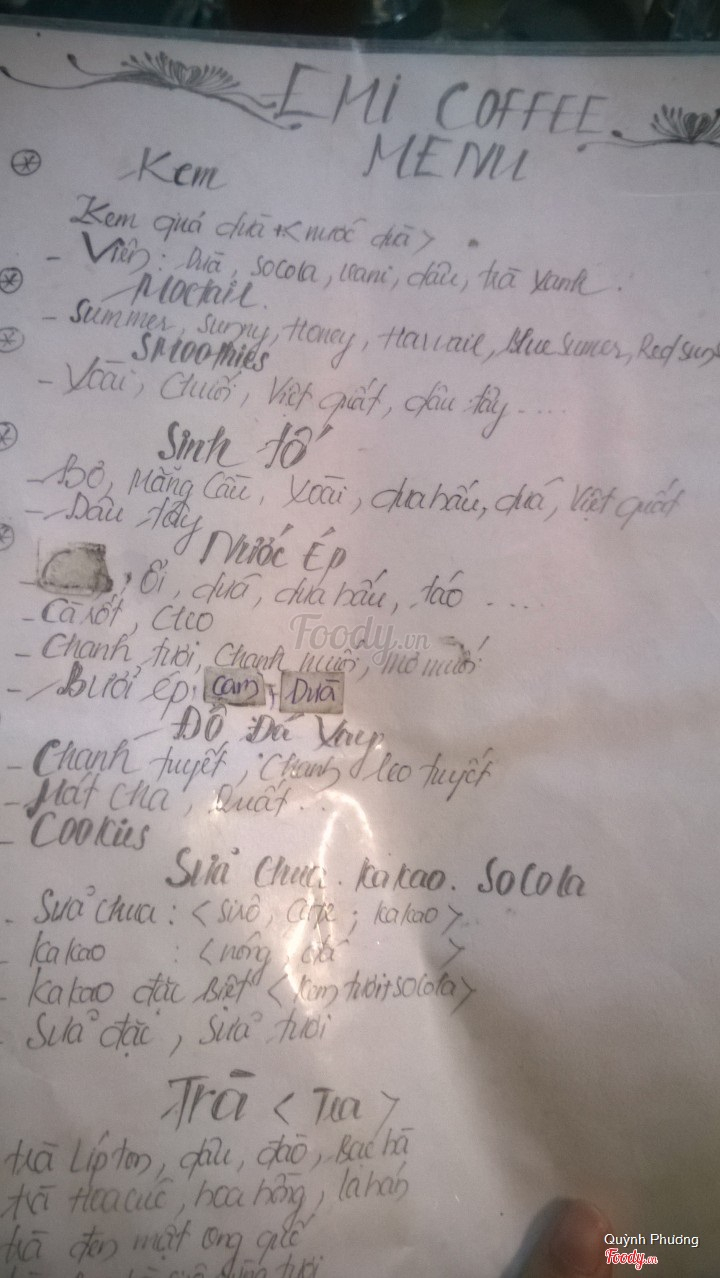 EMI COFFEE
MENU
Kem
Kem quả dừa + < nước dừa >
- Viên: Dừa, Socola, vani, dâu, trà xanh.
Moctail
- Summer, sunny, Honey, Hawail, Blue Sumer, Red sun
SMOOTHIES
- Xoài, Chuối, Việt quất, dâu tây ....
Sinh tố
- Bơ, Mãng Cầu, Xoài, dưa hấu, dứa, Việt quất
- Dâu tây
Nước Ép
, ổi, dứa, dưa hấu, táo ....
- Cà rốt,
- Chanh tươi, Chanh muối, mơ muối
- Bưởi ép, Cam, Dừa
Đồ Đá Xay
- Chanh tuyết, Chanh leo tuyết
- Mát cha, Quất...
- Cookies
Sữa Chua. Kakao. Socola
- Sữa chua: < sirô, cafe; kakao >
- Kakao : < nóng, đá >
- Kakao đặc Biệt < kem tươi + socola >
- Sữa đặc, Sữa tươi
Trà < Tea >
trà Lipton, dâu, đào, Bạc hà
trà Hoa cúc, hoa hồng, la hán
trà đen mật ong quế
tươi
Foody.vn
Quỳnh Phương
Foody.vn